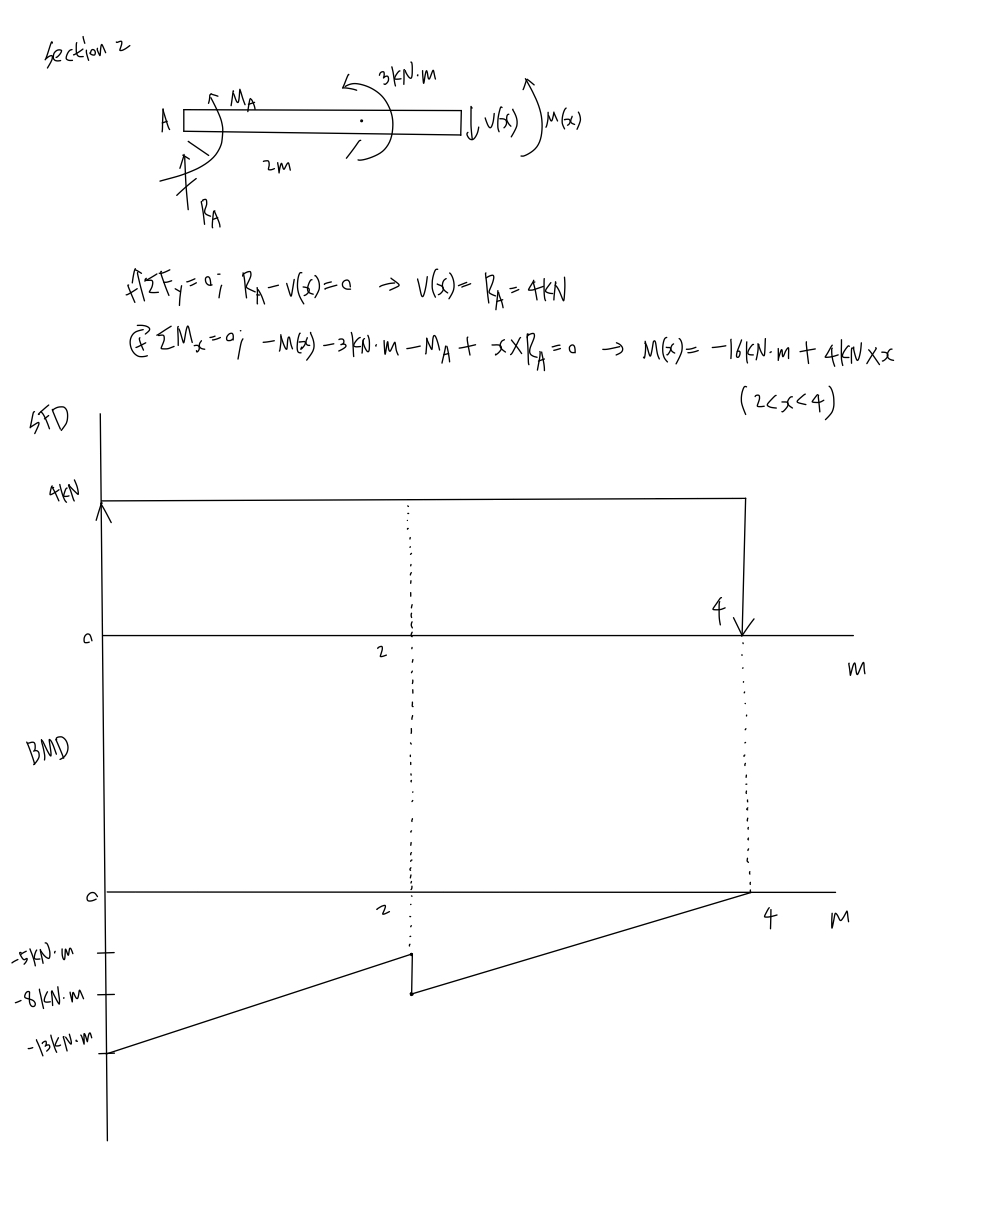 Section 2
3kN·m
M_A
A
V(x)
M(x)
2m
R_A
+↑ΣF_y=0; R_A-V(x)=0 → V(x)= R_A=4kN
ΣM_x=0; -M(x)-3kN·m-M_A+ x×R_A=0 → M(x)= -16kN·m+4kN×x
(2<x<4)
SFD
4kN
4
0
2
m
BMD
0
2
4
m
-5kN·m
-8kN·m
-13kN·m